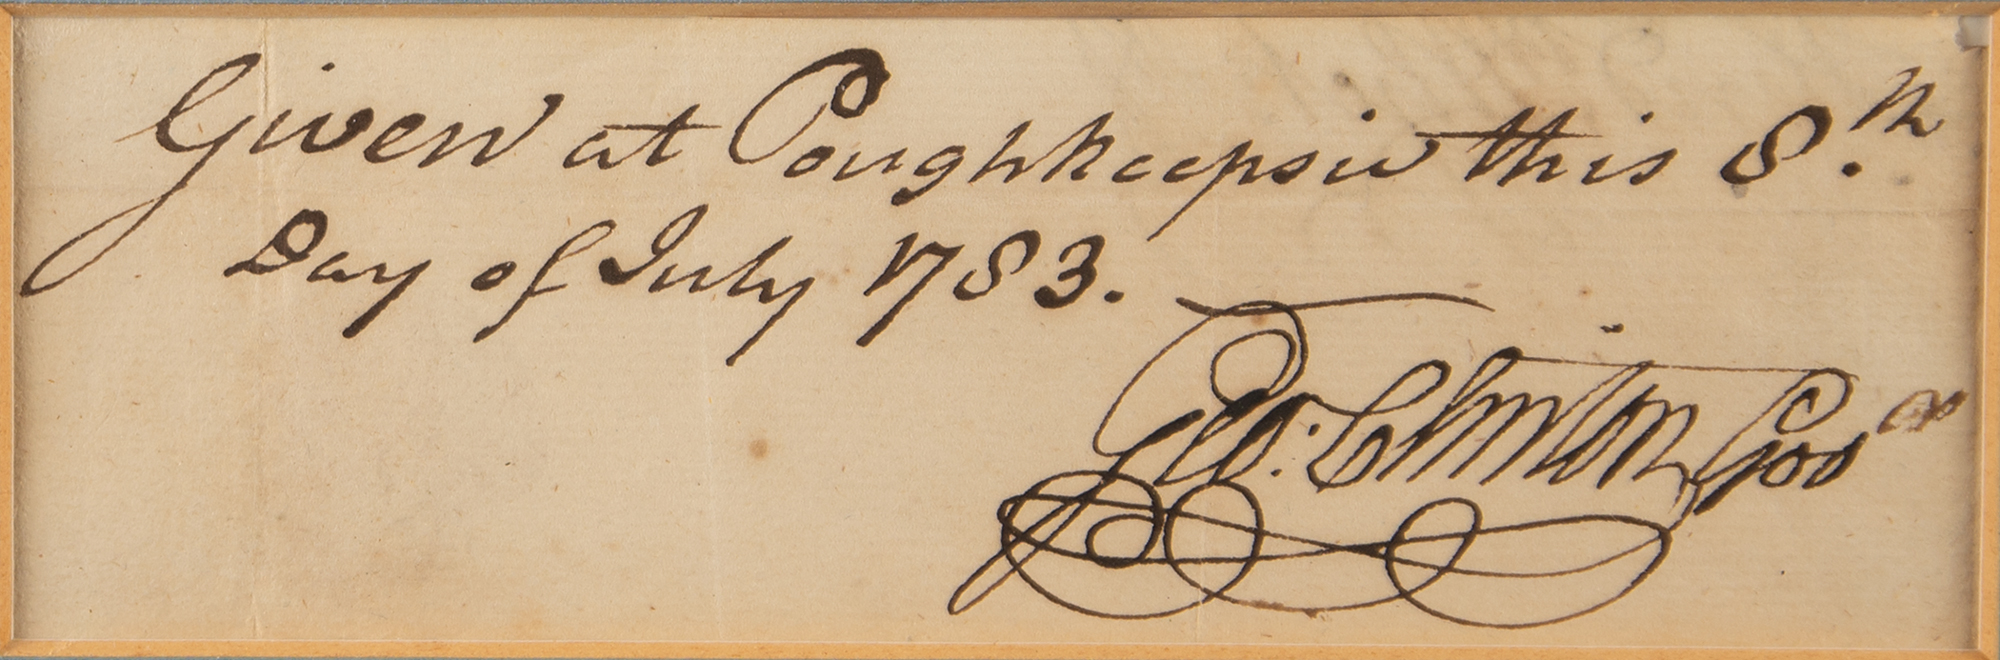 Given at Poughkeepsie this 8.th
Day of July 1783.
Geo: Clinton Govr